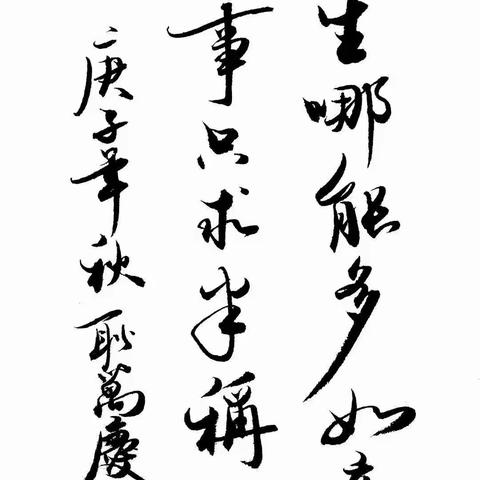 生哪能多如
事只求半稱
庚子年秋 耿萬慶